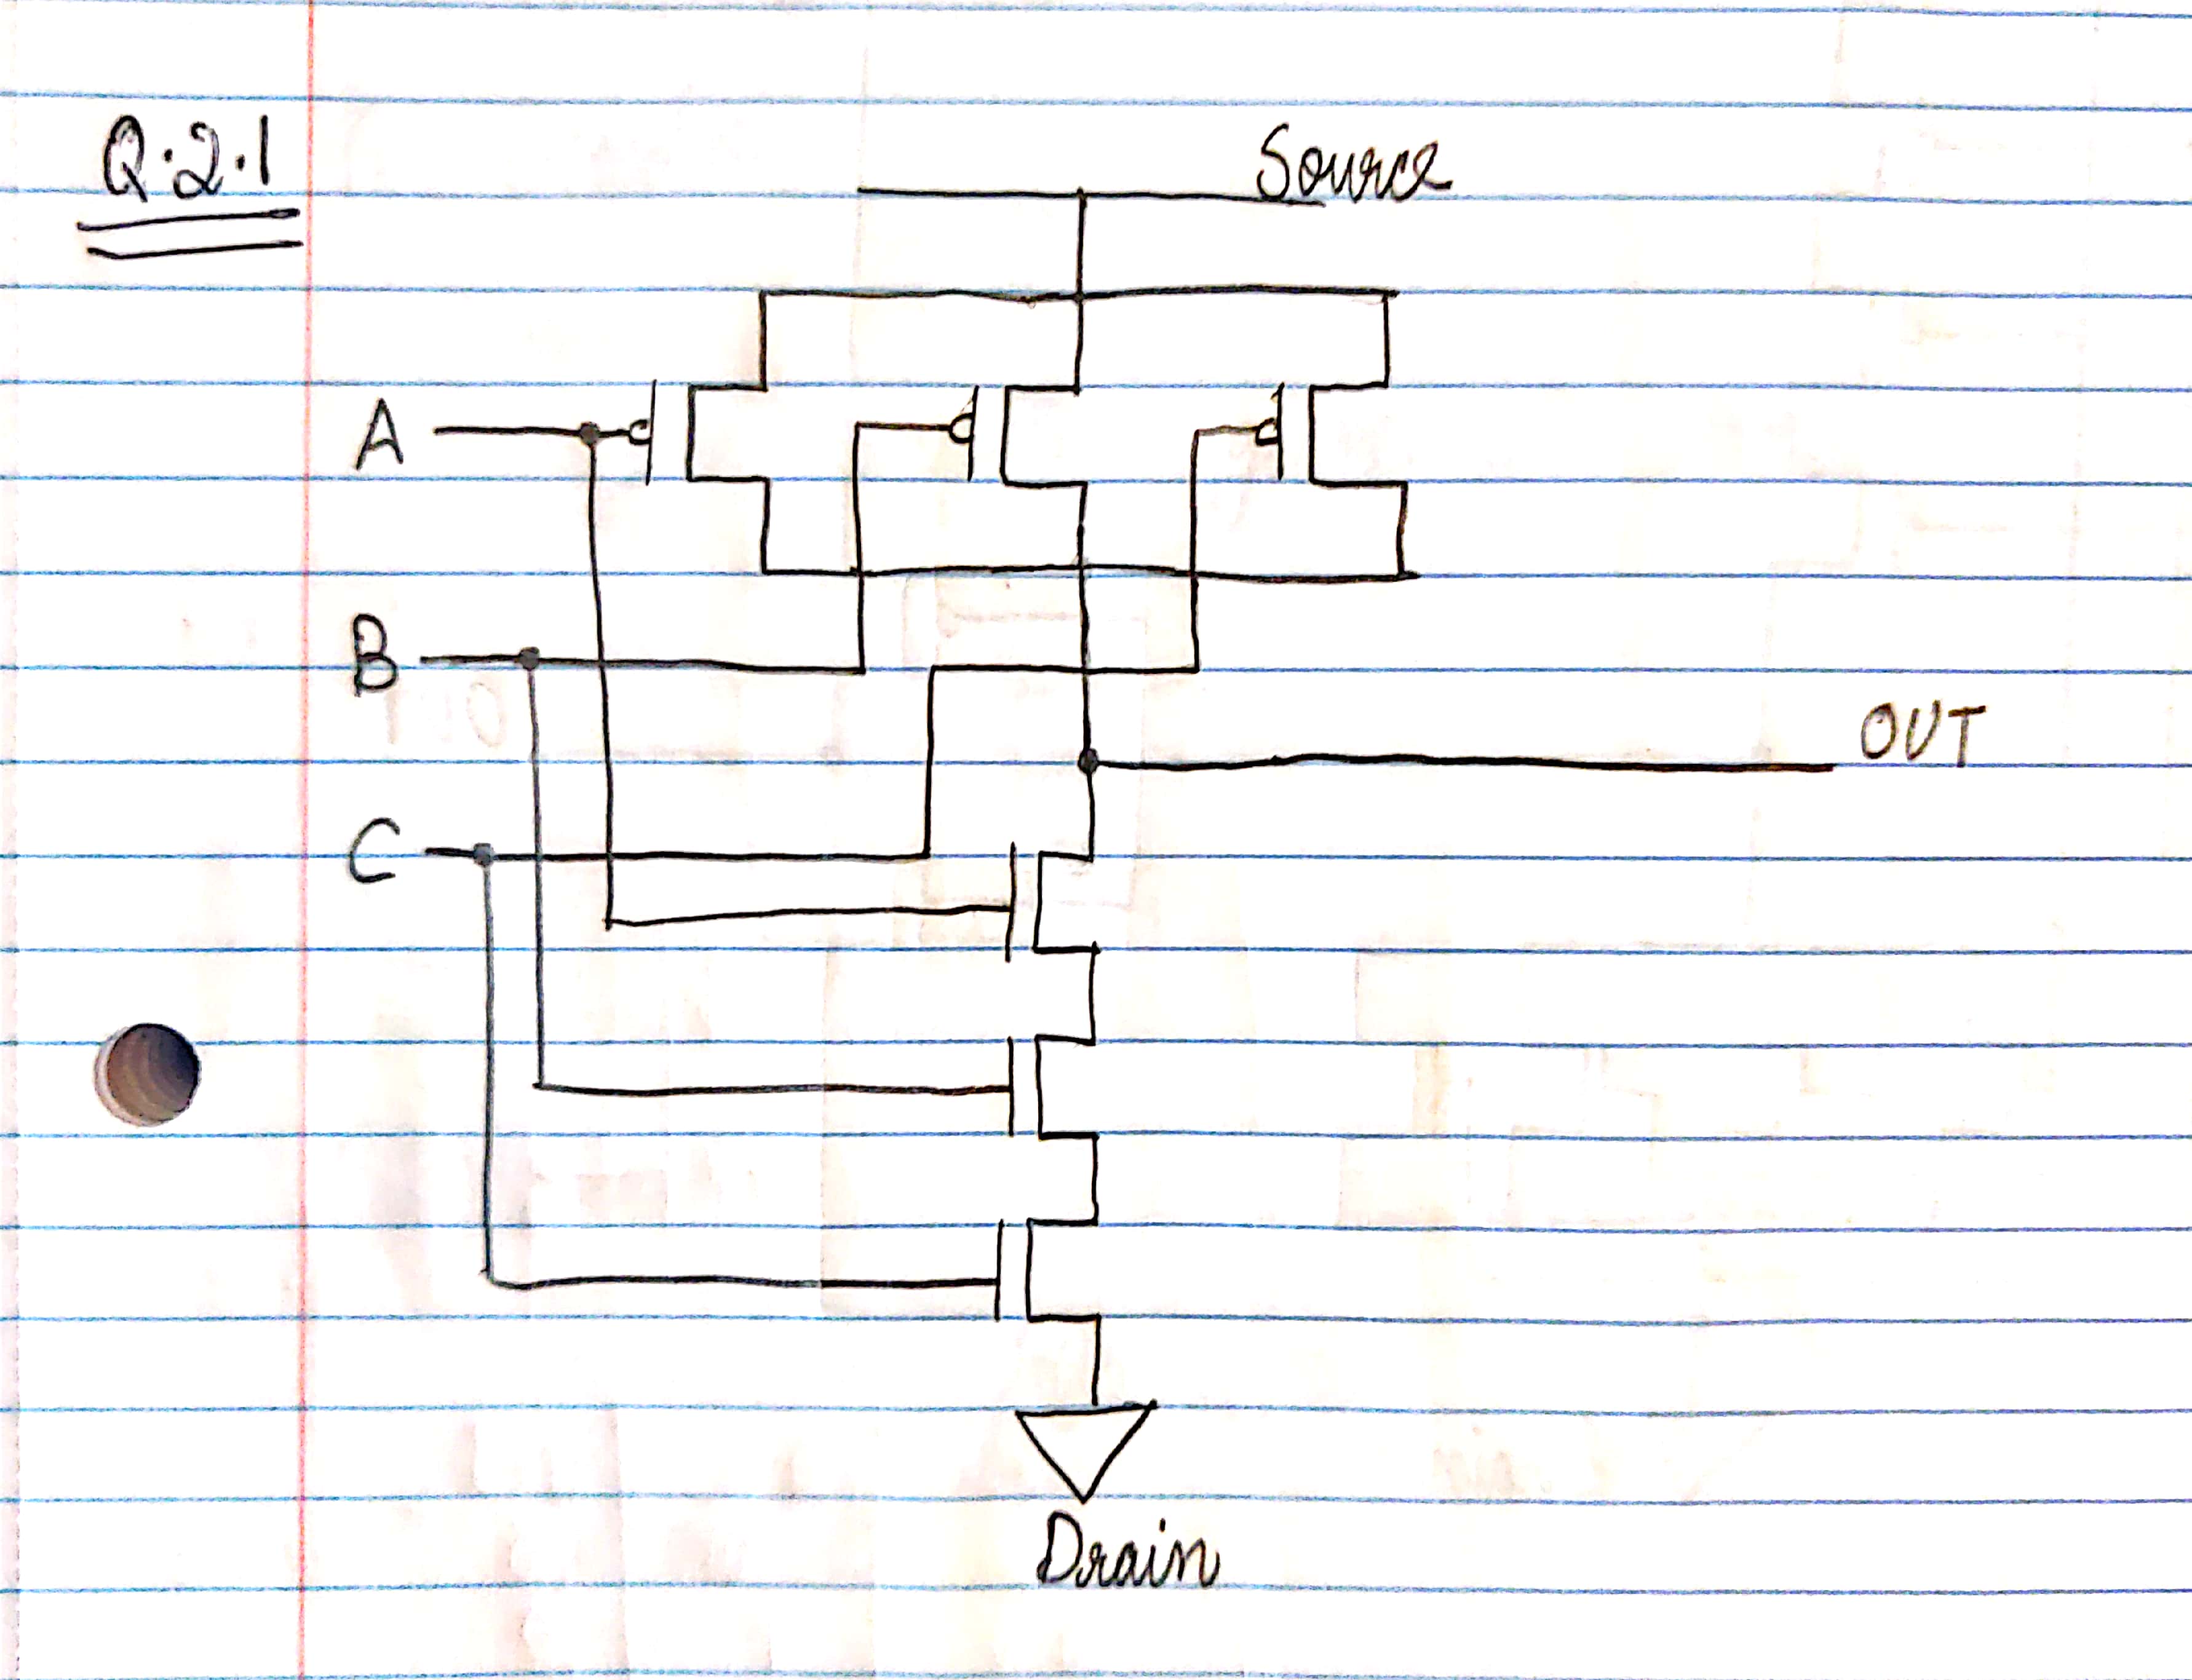 Q.2.1
Source
A
B
OUT
C
Drain